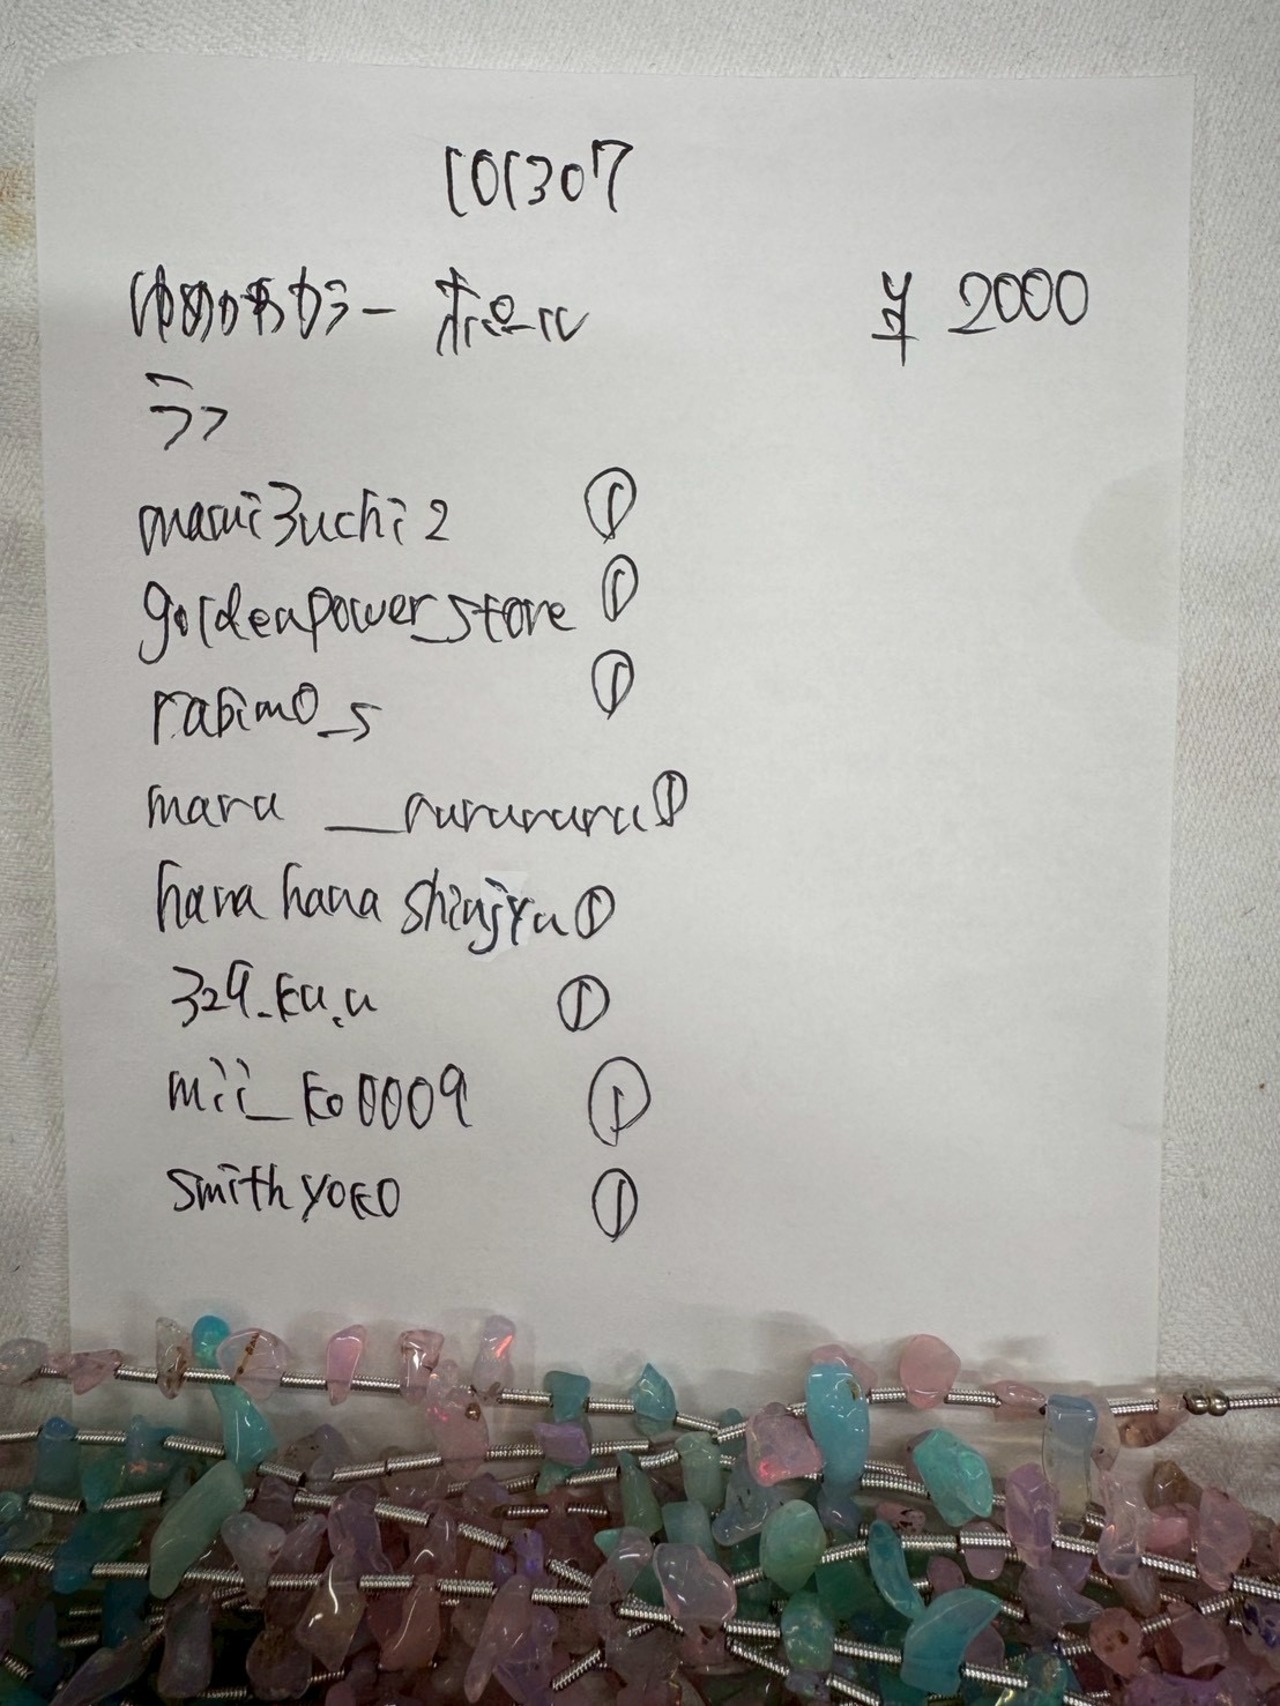 101307
ゆめかわカラー オパール ¥2000
ラフ
mami3uchi2 ①
goldenpower_store ①
rabimo_s ①
maru __rurururu ①
hana hana shinjyu ①
329_ku.u ①
mii_ko0009 ①
smithyoko ①